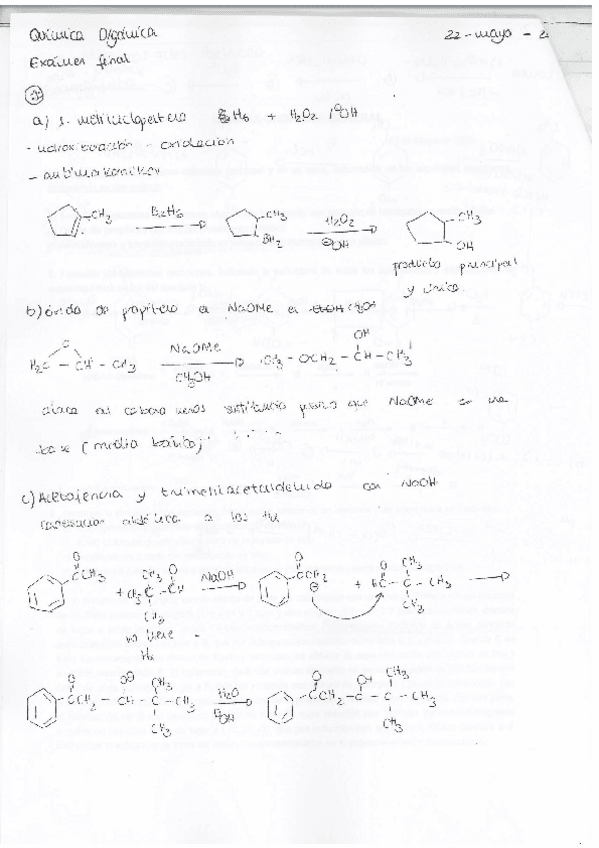 Química Orgánica 22-mayo-2
Exámen final
a) 1-metilciclopenteno B2H6 + H2O2 / ⊖OH
- hidroboración - oxidación
- antimarkonikov
CH3 B2H6 CH3 H2O2 CH3
BH2 ⊖OH OH
producto principal
y único.
b) óxido de propileno en NaOMe en CH3OH
O NaOMe OH
H2C - CH - CH3 CH3OH CH3 - OCH2 - CH - CH3
ataca al carbono menos sustituido que NaOMe es una
base (medio básico)
c) Acetofenona y trimetilacetaldehido con NaOH
condensación aldólica
O CH3 O O O CH3
CCH3 + CH3 C - CH NaOH CCH2 + HC - C - CH3
CH3 ⊖ CH3
no tiene
Hα
O O⊖ CH3 O OH CH3
CCH2 - CH - C - CH3 H2O CCH2 - C - C - CH3
CH3 ⊖OH CH3